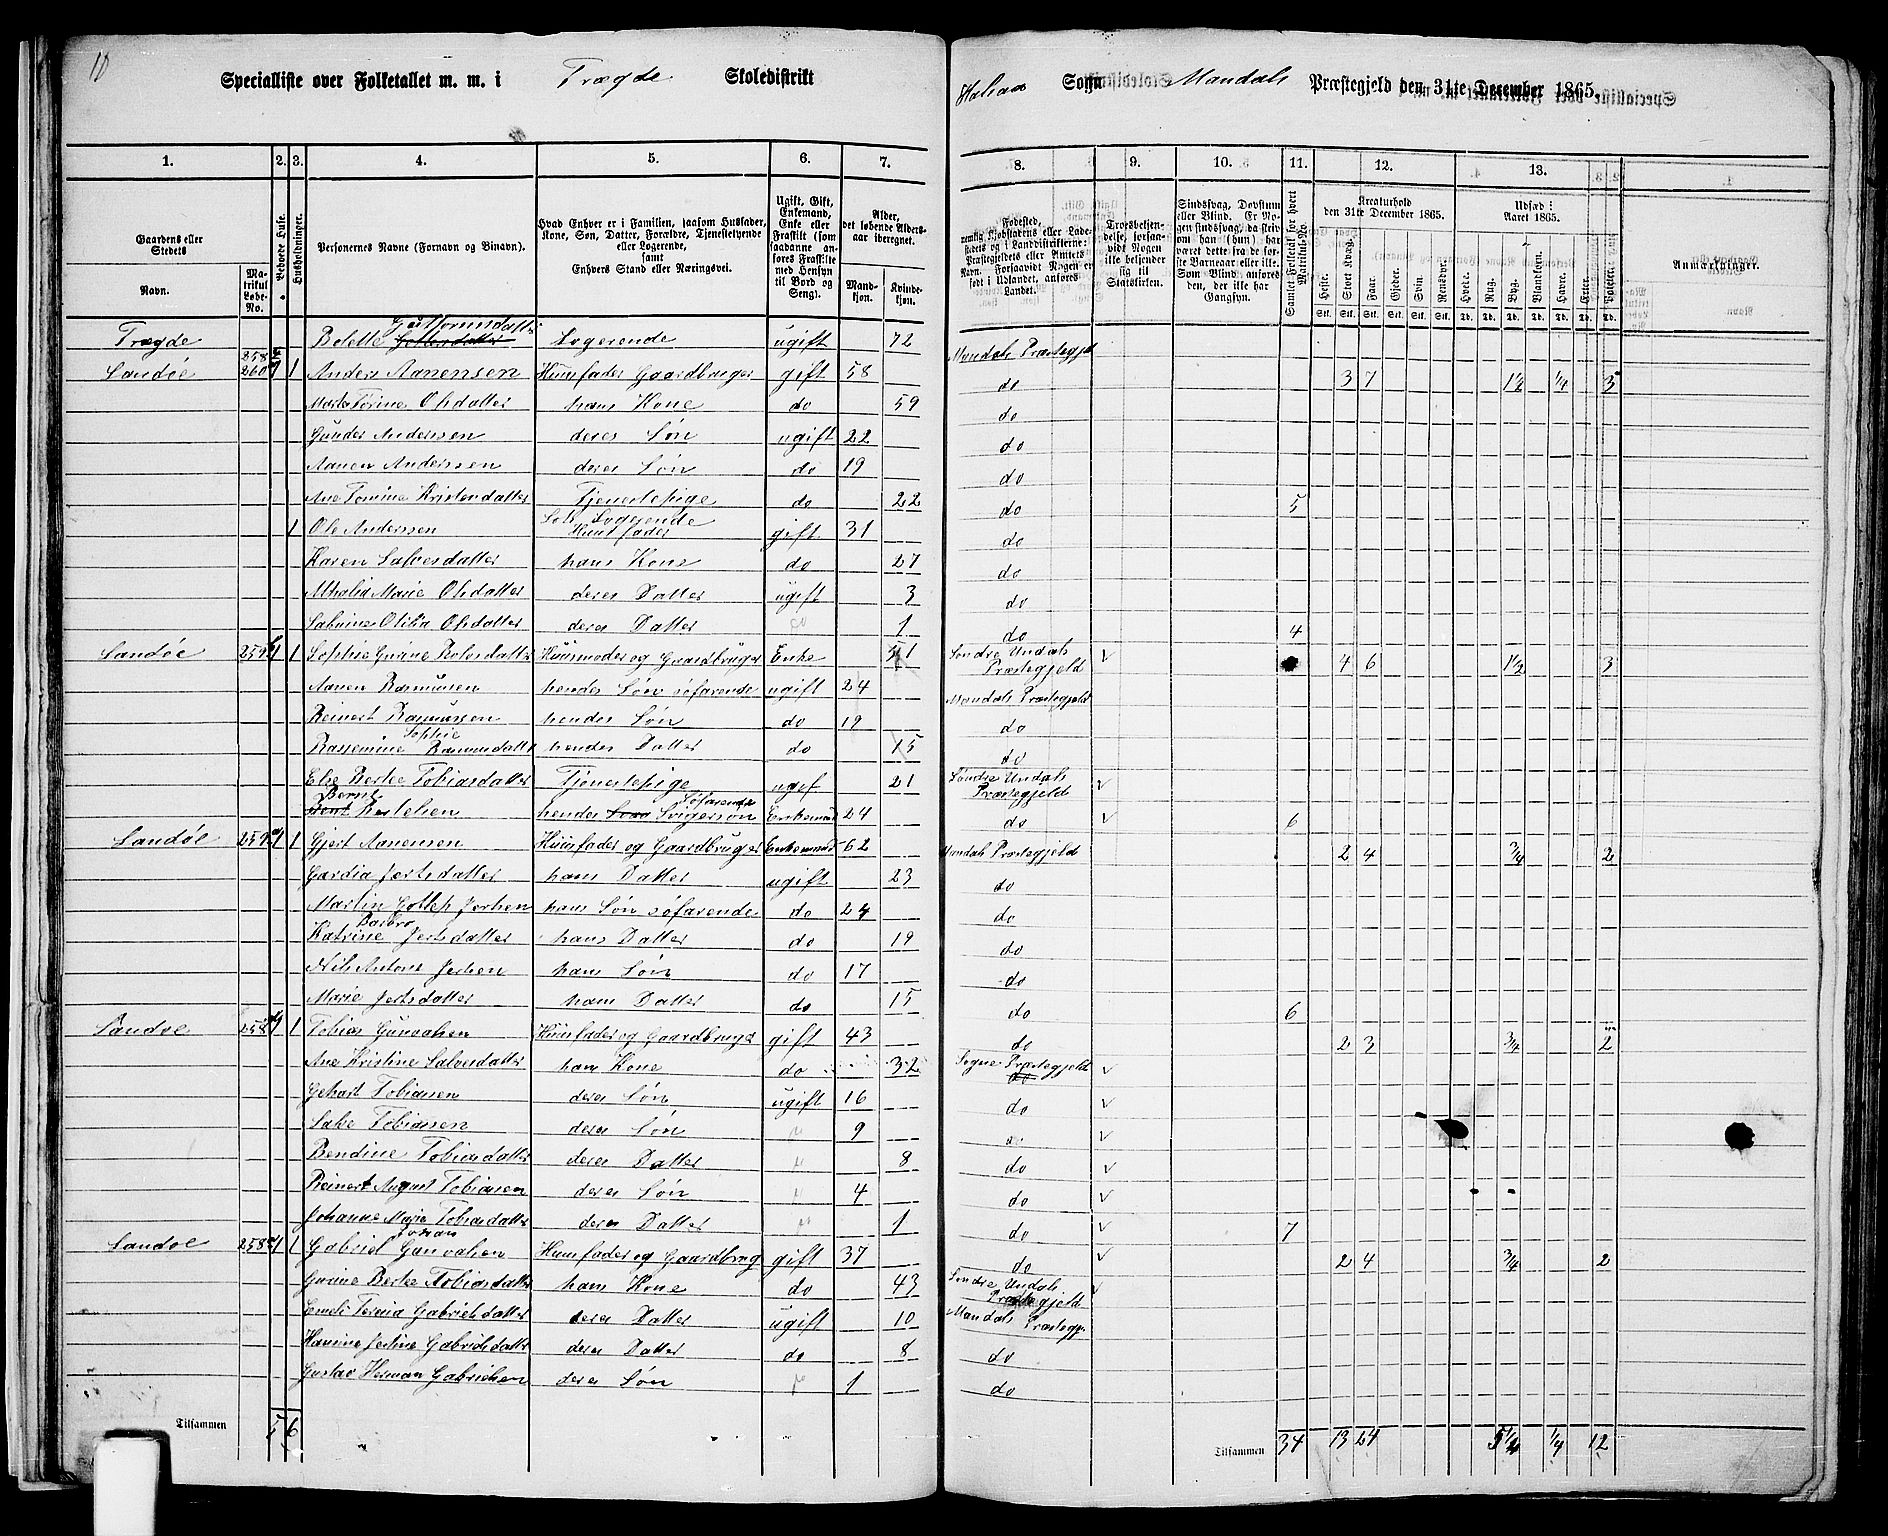 10
Specialliste over Folketallet m. m. i Trægde Skoledistrikt
Halsaa Sogn Mandals Præstegjeld den 31te December 1865.
1. 2. 3. 4. 5. 6. 7.
8. 9. 10. 11. 12. 13.
Gaardens eller Stedets
Navn.
Matrikul Løbe-No.
Beboede Huse.
Husholdninger.
Personernes Navne (Fornavn og Binavn).
Hvad Enhver er i Familien, saasom Husfader, Kone, Søn, Datter, Forældre, Tjenestetyende eller Logerende, samt Enhvers Stand eller Næringsvei.
Ugift, Gift, Enkemand, Enke eller Fraskilt (som saadanne anføres Fraskilte med Hensyn til Bord og Seng).
Alder, det løbende Alders-aar iberegnet.
Mand-kjøn. Kvinde-kjøn.
Fødested,
Troesbekjendelse, forsaavidt Nogen ikke bekjender sig til Statskirken.
Sindssvag, Døvstum eller Blind. Er Nogen sindssvag, da skrives om han (hun) har været dette fra de første Barneaar eller ikke.
Samlet Folketal for hvert Matrikul-No.
Kreaturhold den 31te December 1865.
Udsæd i Aaret 1865.
Anmærkninger.
Heste. Stort Kvæg. Faar. Gjeder. Svin. Rensdyr. Hvede. Rug. Byg. Blandkorn. Havre. Erter. Poteter.
Stk. Stk. Stk. Stk. Stk. Stk. Td. Td. Td. Td. Td. Td. Td.
Trægde Bolette Logerende ugift 72 Mandals Præstegjd
Sandøe 258 260 1 1 Anders Aanensen Huusfader Gaardbruger gift 58 do 3 7 1½ ¼ 3
Marte Torine Olsdatter hans Kone do 59 do
Gunder Anderssen deres Søn ugift 22 do
Aanen Anderssen deres Søn do 19 do
Ane Tomine Kristensdatter Tjenestepige do 22 do 5
1 Ole Anderssen Logerende Huusfader gift 31 do
Karen Salvesdatter hans Kone do 27 do
Mathilia Marie Olsdatter deres Datter ugift 3 do
Sabrine Otilia Olsdatter deres Datter do 1 do 4
Sandøe 259 1 1 Sophie Gurine Rolosdatter Huusmoder og Gaardbruger Enke 51 Søndre Undals Præstegjeld 4 6 1½ 3
Aanen Rasmussen hendes Søn søfarende ugift 24 Mandals Præstegjeld
Reinert Rasmussen hendes Søn do 19 do
Rassemine Sophie Rasmusdatter hendes Datter do 15 do
Else Bertee Tobiasdatter Tjenestepige ugif 21 Søndre Undals Præstegjeld
Bernt Bertelsen hendes Svigersøn Søfarende Enkemand 24 do 6
Sandøe 259 1 1 Gjert Aanensen Huusfader og Gaardbruger Enkemand 62 Mandals Præstegjeld 2 4 ¾ 2
Gardia Jertsdatter hans Datter ugift 23 do
Martin Gotlep Jertsen hans Søn søfarende do 24 do
Katrine Barbro Jertsdatter hans Datter do 19 do
Nils Antons Jertsen hans Søn do 17 do
Marie Jertsdatter hans Datter do 15 do 6
Sandøe 258 1 1 Tobias Gunvalsen Huusfader og Gaardbruger gift 43 do 2 3 ¾ 2
Ane Kristine Salvesdatter hans Kone do 32 Sogne Præstegjeld
Gehart Tobiassen deres Søn ugift 16 do
Sake Tobiassen deres Søn " 9 do
Bendine Tobiasdatter deres Datter " 8 do
Reinert August Tobiassen deres Søn " 4 do
Johanne Marie Tobiasdatter deres Datter " 1 do 7
Sandøe 258 1 1 Gabriel Johan Gunvalsen Huusfader og Gaardbrug gift 37 do 2 4 ¾ 2
Gurine Bertee Tobiasdatter hans Kone do 43 Søndre Undals Præstegjeld
Emeli Terecia Gabrielsdatter deres Datter ugift 10 Mandals Præstegjd
Hanine Jertine Gabrielsdatter deres Datter do 8 do
Gustav Herman Gabrielsen deres Søn " 1 do
Tilsammen 5 6
Tilsammen 34 13 24 5¼ ¼ 12